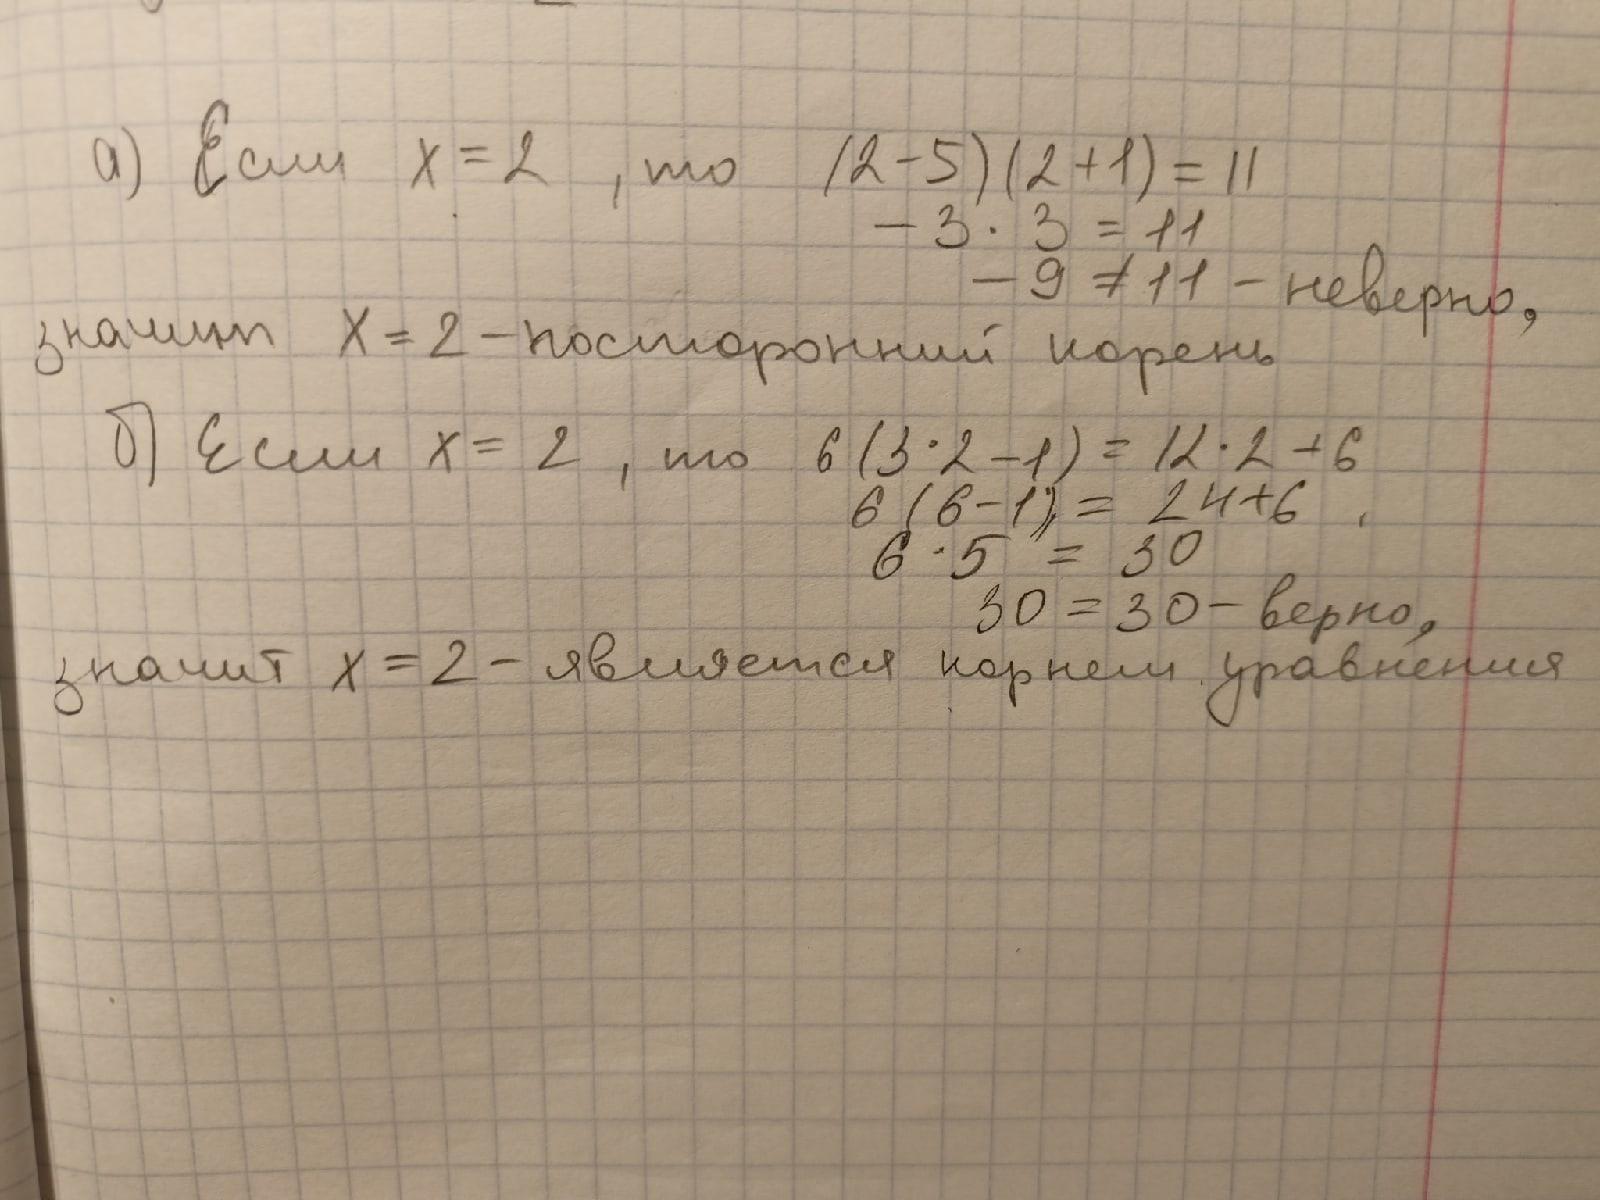 а) Если x = 2 , то (2-5)(2+1) = 11
-3 · 3 = 11
-9 ≠ 11 - неверно,
значит x = 2 - посторонний корень
б) Если x = 2 , то 6(3·2-1) = 12·2+6
6(6-1) = 24+6
6·5 = 30
30 = 30 - верно,
значит x = 2 - является корнем уравнения